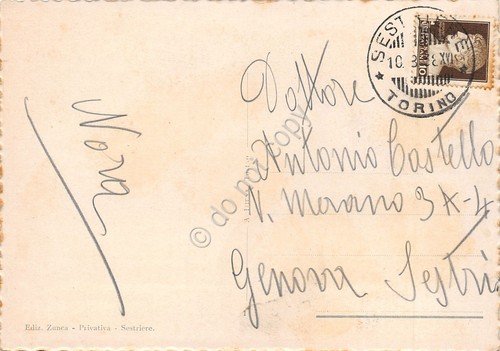 SESTRIERE
10.3. 8 XVI
TORINO
Dottore
Antonio Costello
V. Merano 3A-4
Genova Sestri
Nora
do not copy
Ediz. Zunca - Privativa - Sestriere.